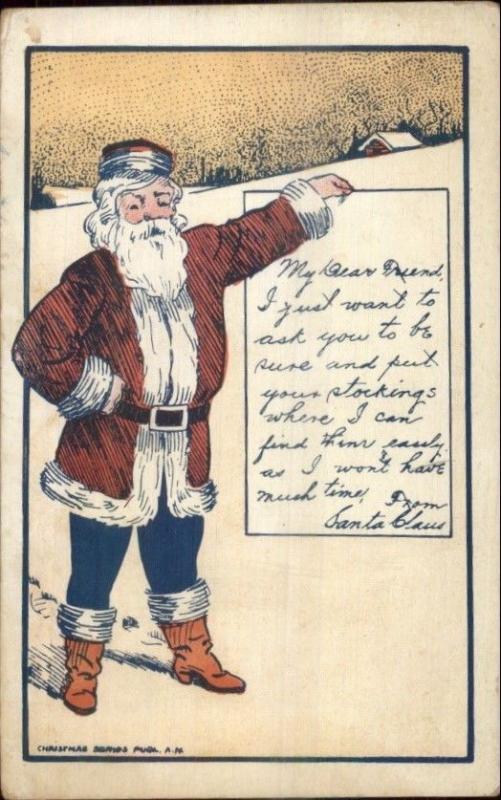 My Dear Friend,
I just want to
ask you to be
sure and put
your stockings
where I can
find them easily
as I won't have
much time!
From
Santa Claus
CHRISTMAS SERIES PUBL. A.H.